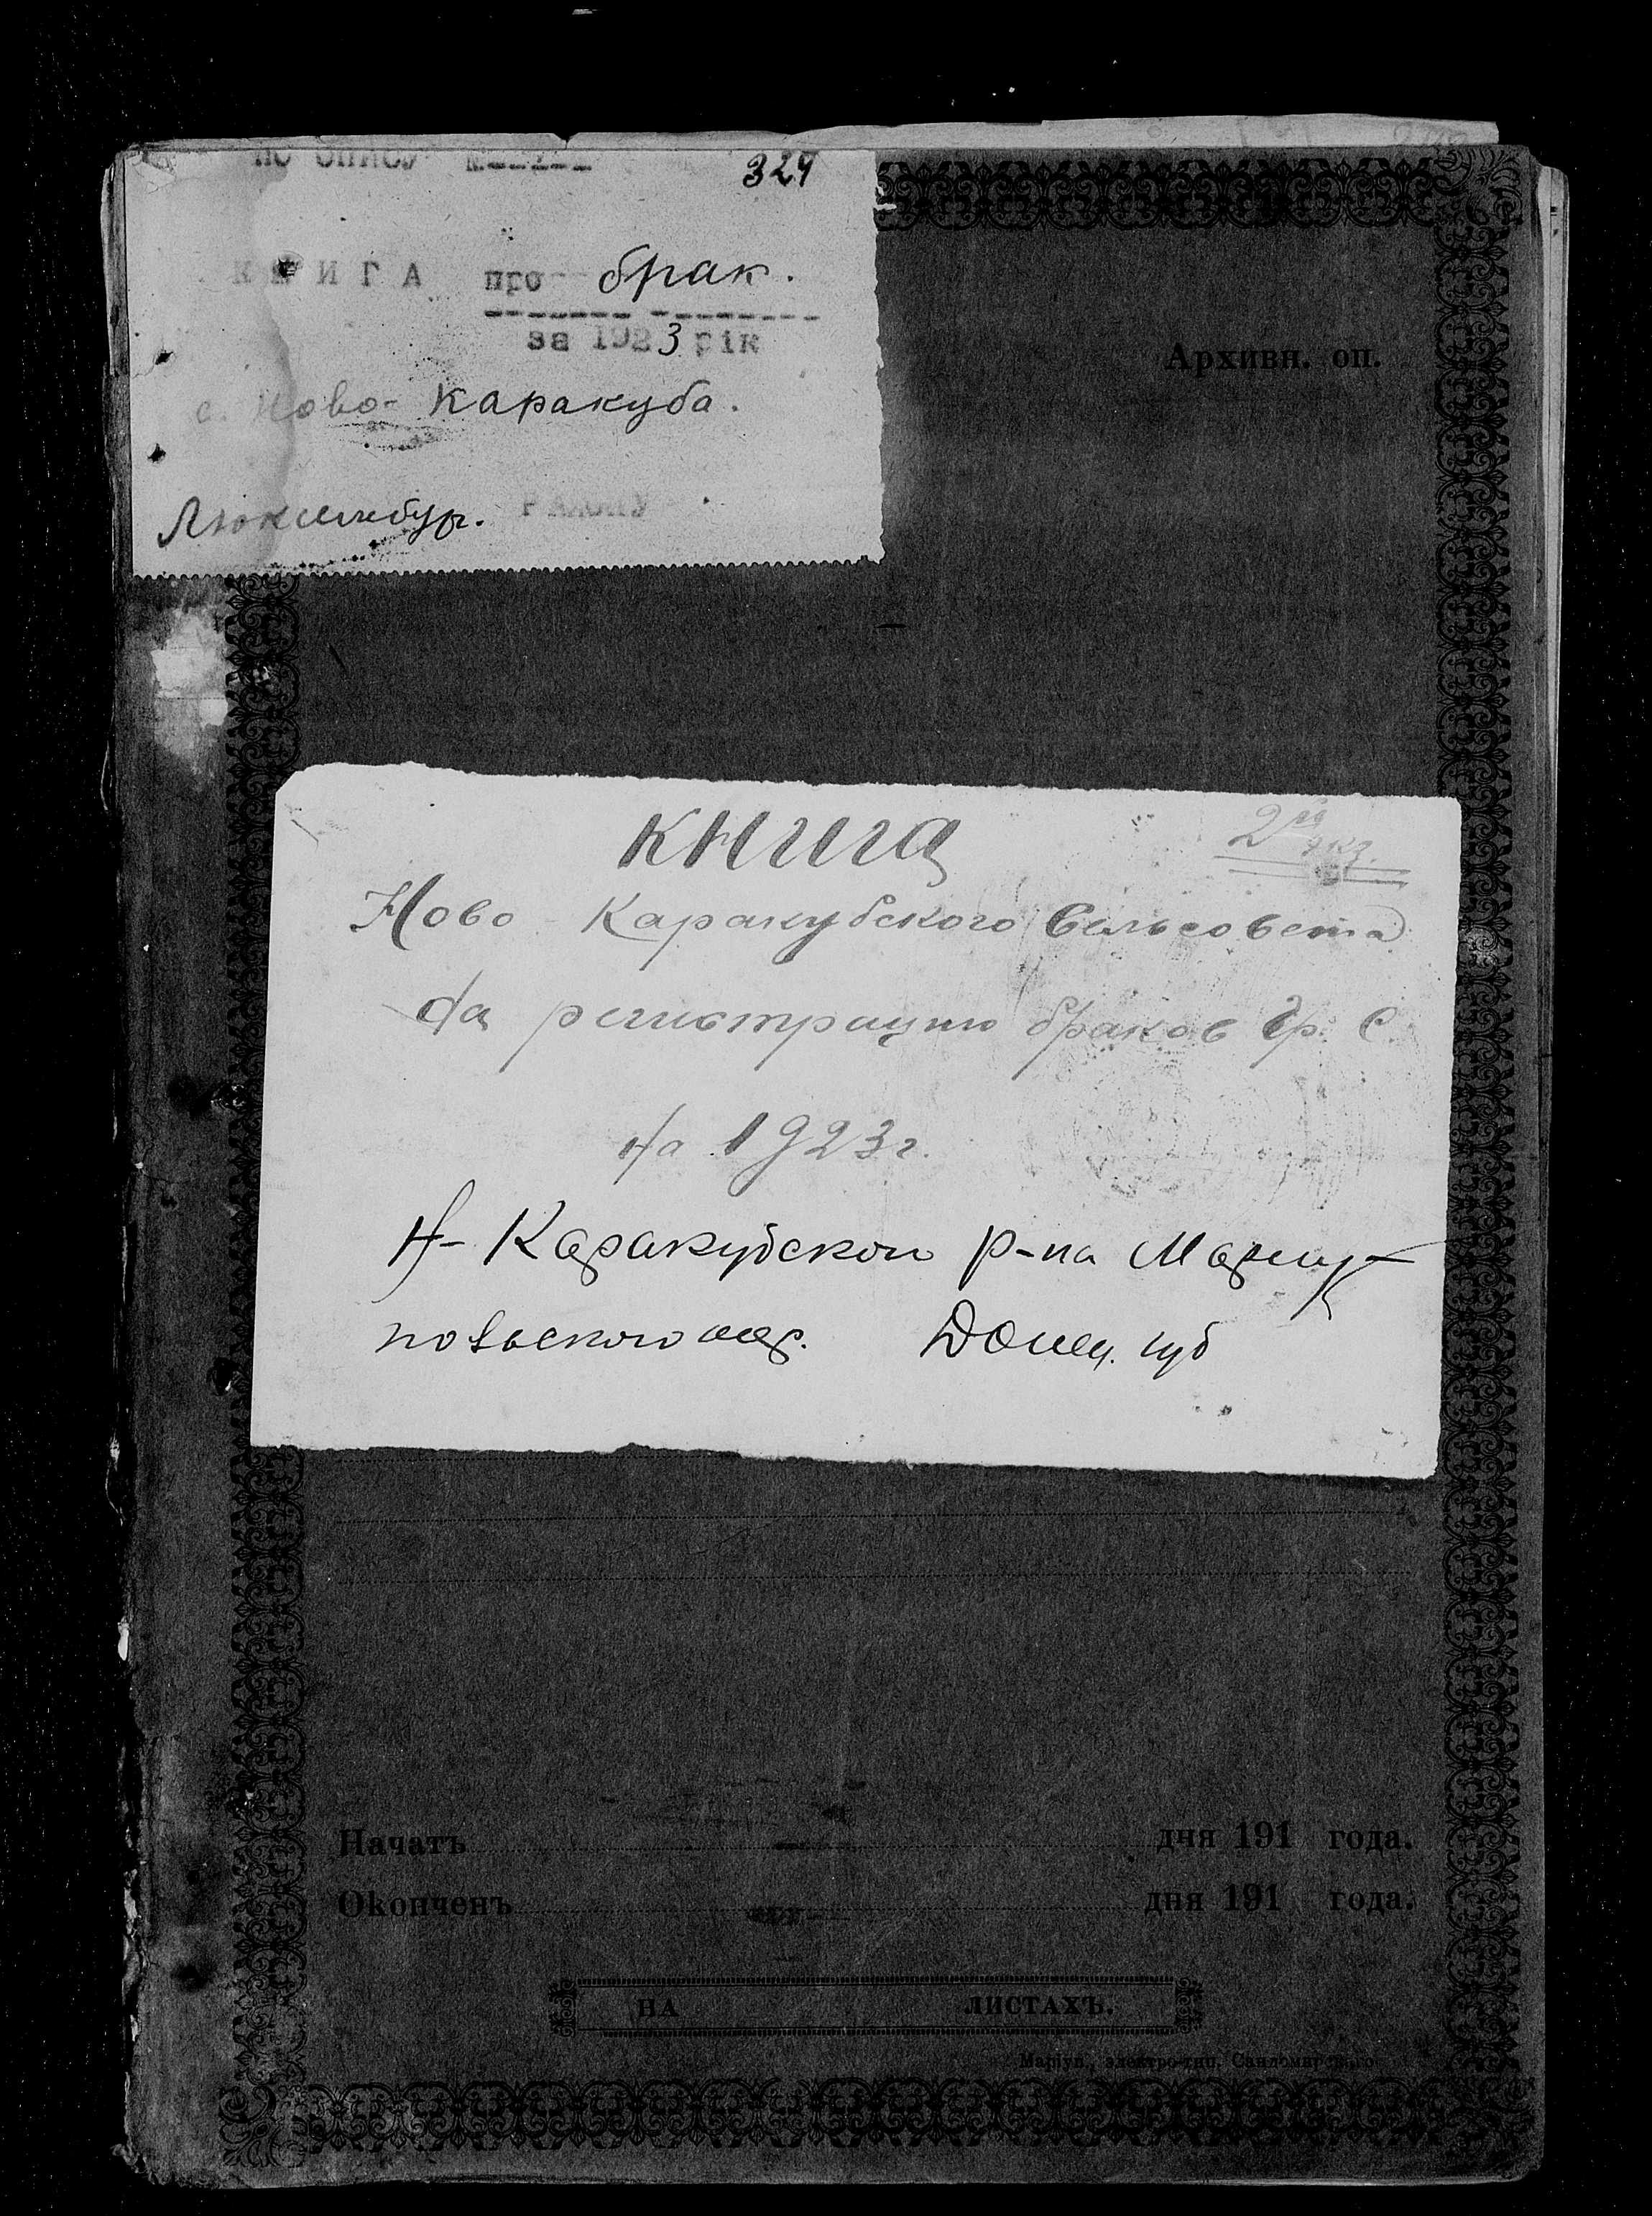 по опису №
324
КНИГА про брак.
за 1923 рік
с. Ново-Каракуба.
Люксембур. району
Архивн. оп.
Книга
2й экз.
Ново Каракубского Сельсовета
На регистрацию браков Гр. С.
На 1923 г.
Н-Каракубского р-на Мариу-
польского окр. Донец. губ
Начатъ дня 191 года.
Оконченъ дня 191 года.
НА ЛИСТАХЪ.
Маріуп., электро-тип. Сандомирского